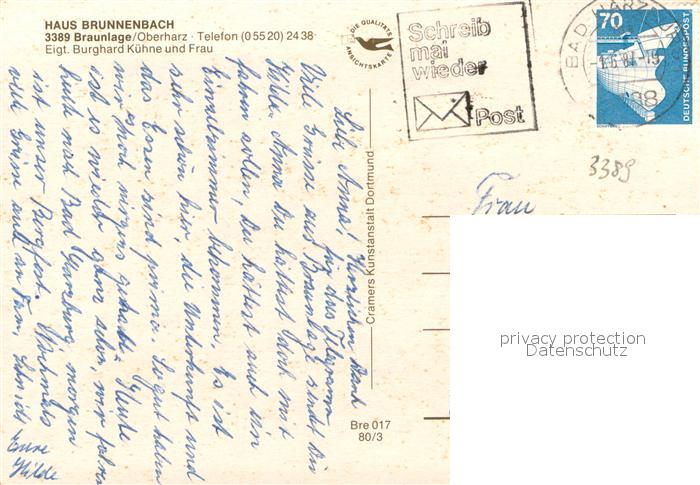 HAUS BRUNNENBACH
3389 Braunlage/Oberharz · Telefon (0 55 20) 24 38
Eigt. Burghard Kühne und Frau
DIE QUALITÄTS
ANSICHTSKARTE
Schreib
mal
wieder
Post
BAD HARZBURG
70
DEUTSCHE BUNDESPOST
3389
Frau
Liebe Anna! Herzlichen Dank
für das Telegramm
Viele Grüsse aus Braunlage sendet Dir
Hilde. Anna Du hättest doch mit
fahren sollen, Du hättest auch ein
Einzelzimmer bekommen. Es ist
sehr schön hier, die Unterkunft und
das Essen sind prima. So gut haben
wir noch nirgens gehabt. Heute
ist es nicht aber, wir fahren
heute nach Bad Harzburg, morgen
ist unser Bergfest. Nochmals
viele Grüsse auch an Fam. Schmidt
Eure
Hilde
Cramers Kunstanstalt Dortmund
Bre 017
80/3
privacy protection
Datenschutz